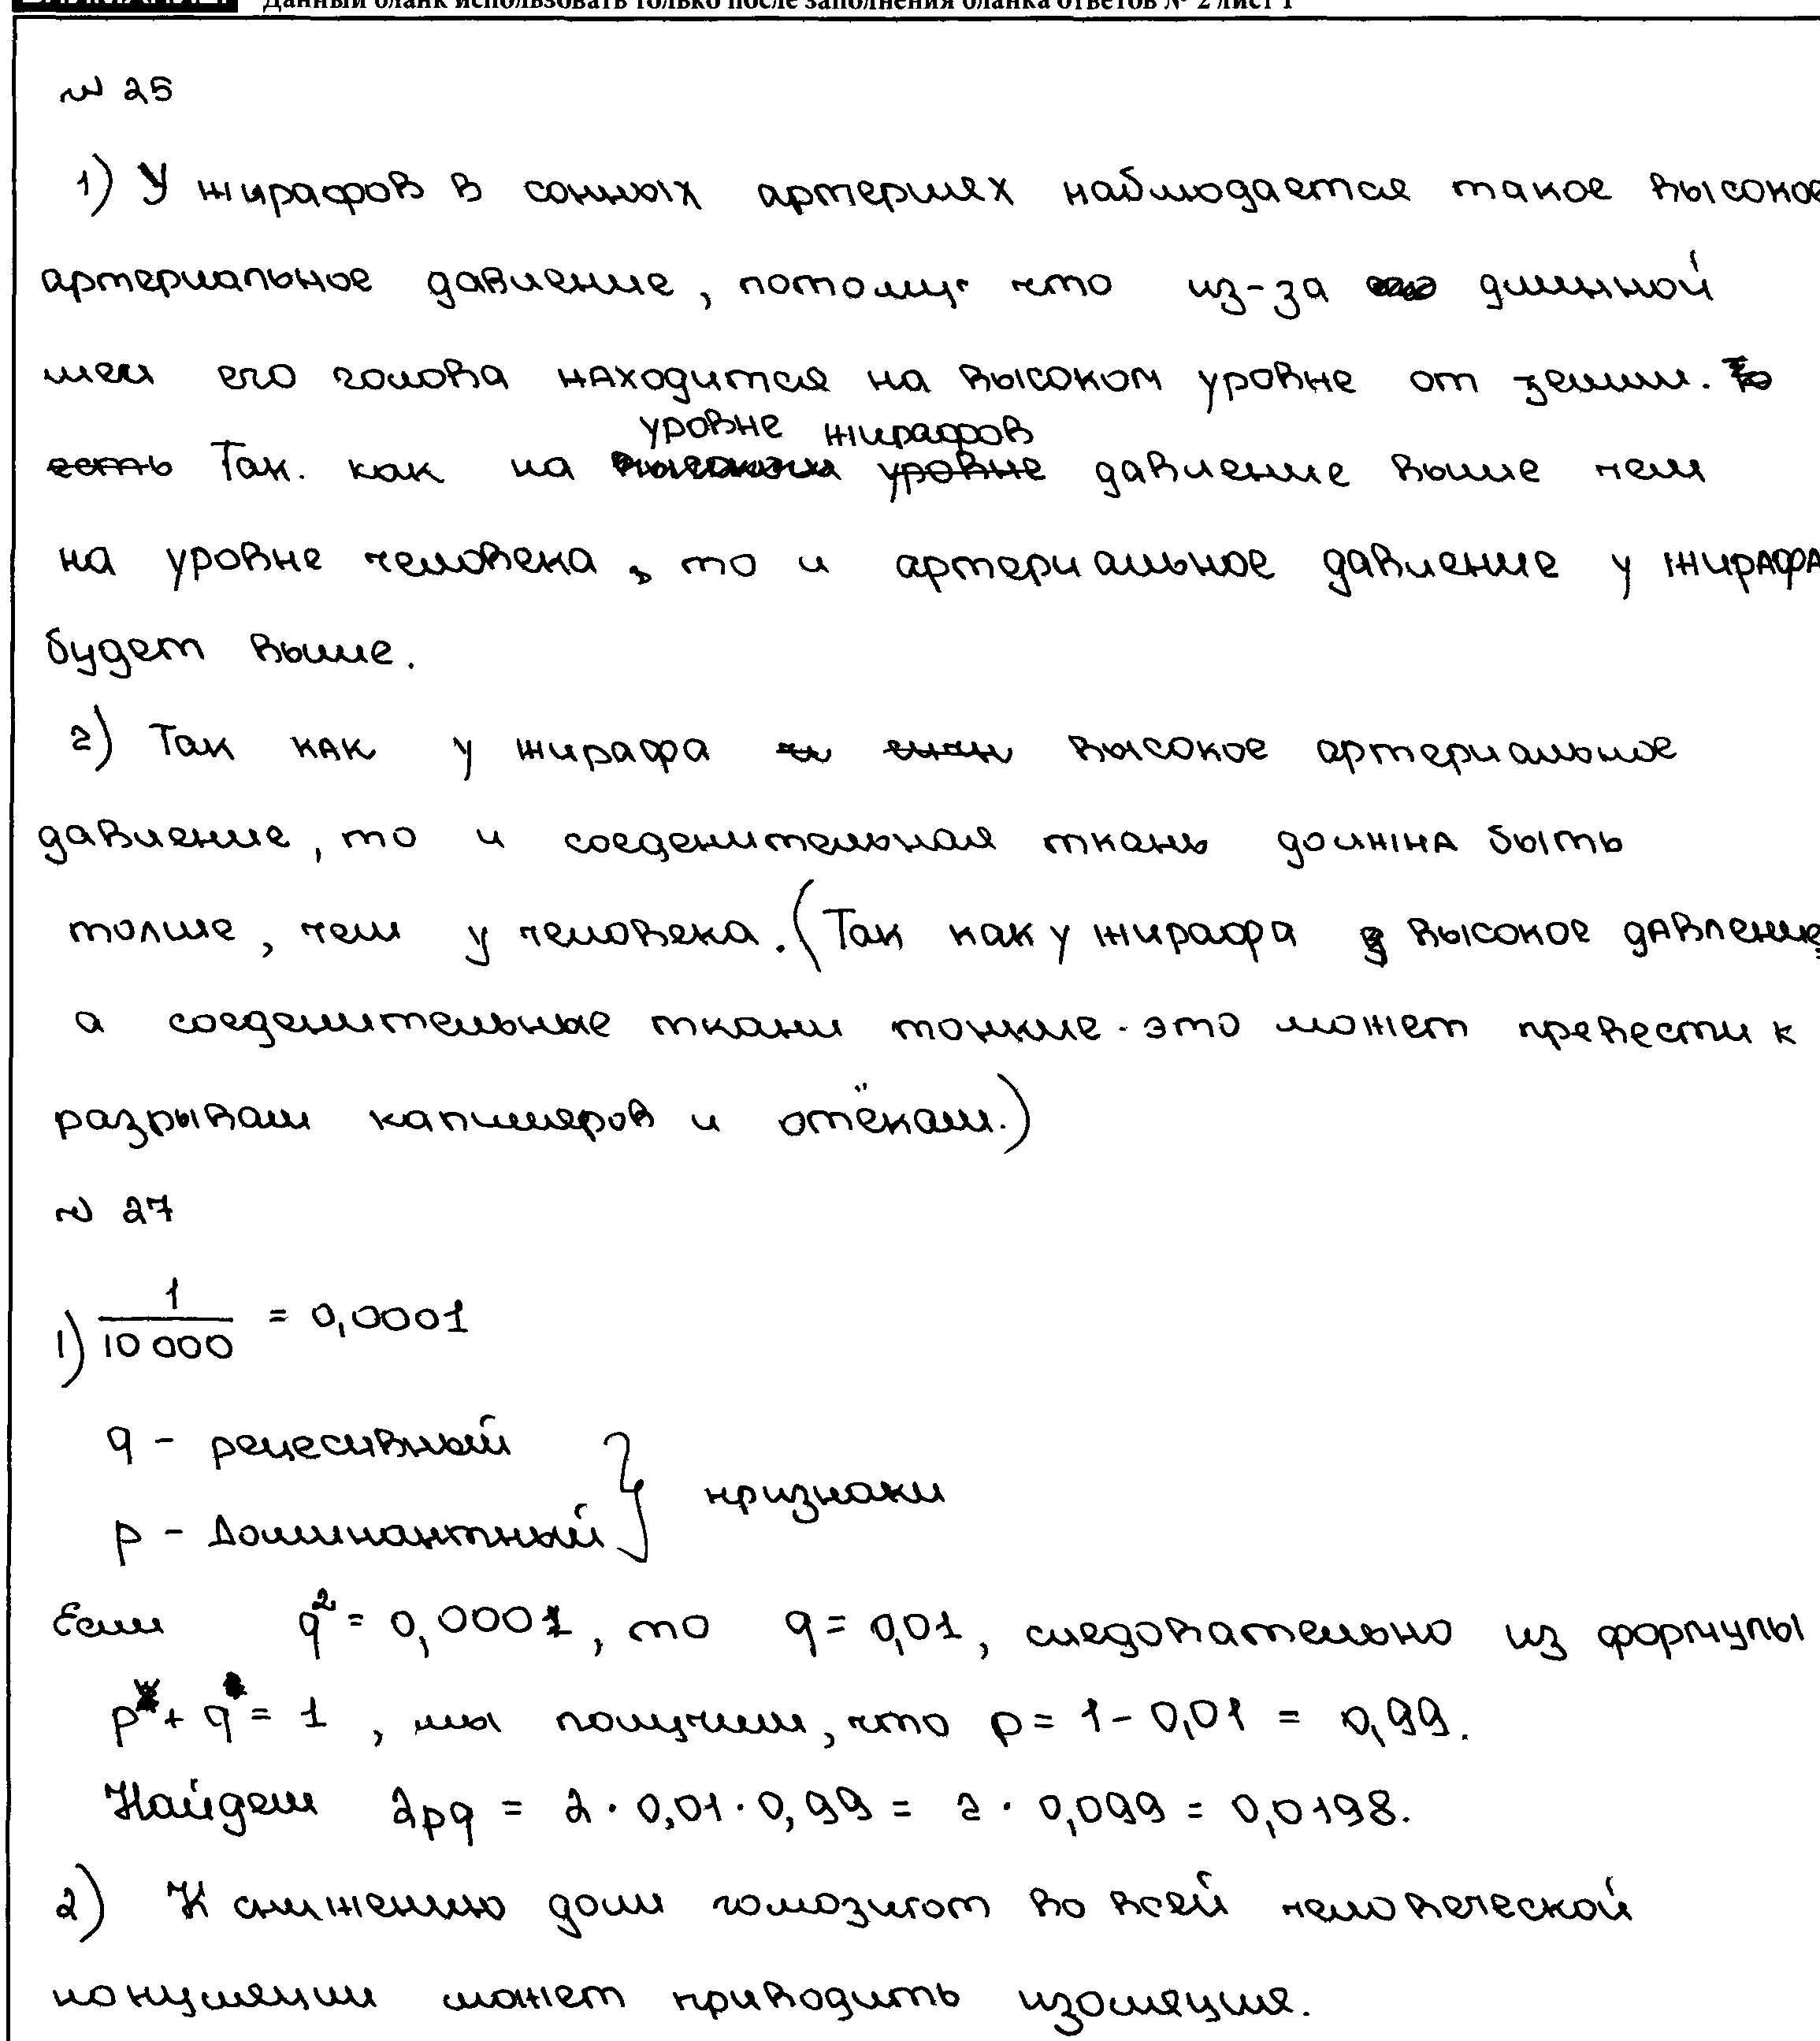 Данный бланк использовать только после заполнения бланка ответов № 2 лист 1
№ 25
1) У жирафов в сонных артериях наблюдается такое высокое
артериальное давление, потому что из-за длинной
шеи его голова находится на высоком уровне от земли. То
есть Так. как на уровне жирафов давление выше чем
на уровне человека, то и артериальное давление у жирафа
будет выше.
2) Так как у жирафа высокое артериальное
давление, то и соеденительная ткань должна быть
толше, чем у человека. (Так как у жирафа высокое давление,
а соеденительные ткани тонкие - это может превести к
разрывам капиляров и отёкам.)
№ 27
1) 1/10 000 = 0,0001
q - рецесивный
p - Доминантный } признаки
Если q² = 0,0001, то q = 0,01, следовательно из формулы
p + q = 1, мы получим, что p = 1 - 0,01 = 0,99.
Найдем 2pq = 2 · 0,01 · 0,99 = 2 · 0,099 = 0,0198.
2) К снижению доли гомозигот во всей человеческой
популяции может приводить изоляция.